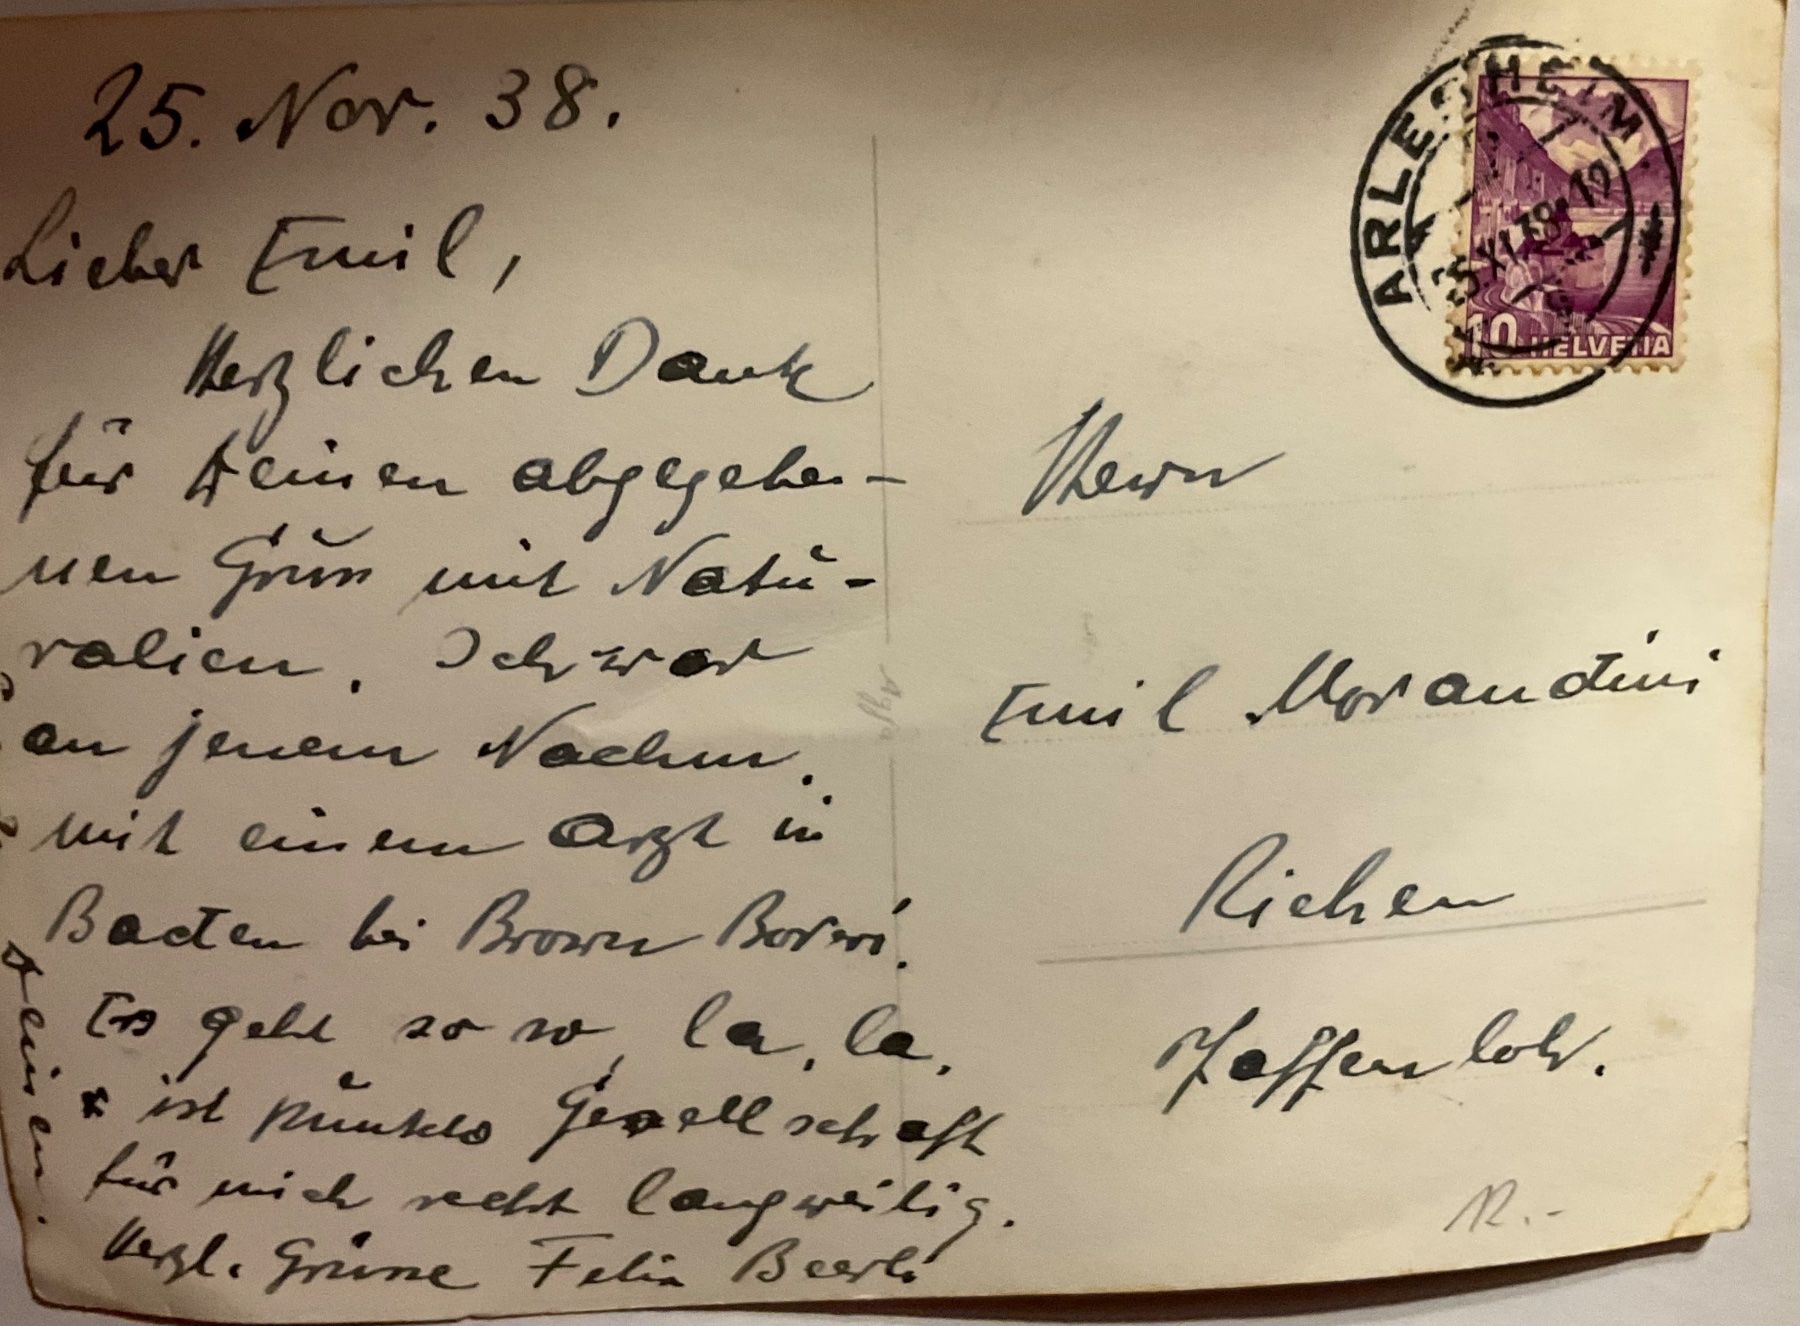 25. Nov. 38.
Lieber Emil,
Herzlichen Dank
für Deinen abgegebe-
nen Gruss mit Natu-
ralien. Ich war
an jenem Nachm.
mit einem Arzt in
Baden bei Brown Boveri.
Es geht so so, la, la,
ist punkto Gesellschaft
für mich recht langweilig.
Herzl. Grüsse Felix Beerli
ARLESHEIM
25.XI.38
10 HELVETIA
Herrn
Emil Morandini
Riehen
Pfaffenloh.
12.-